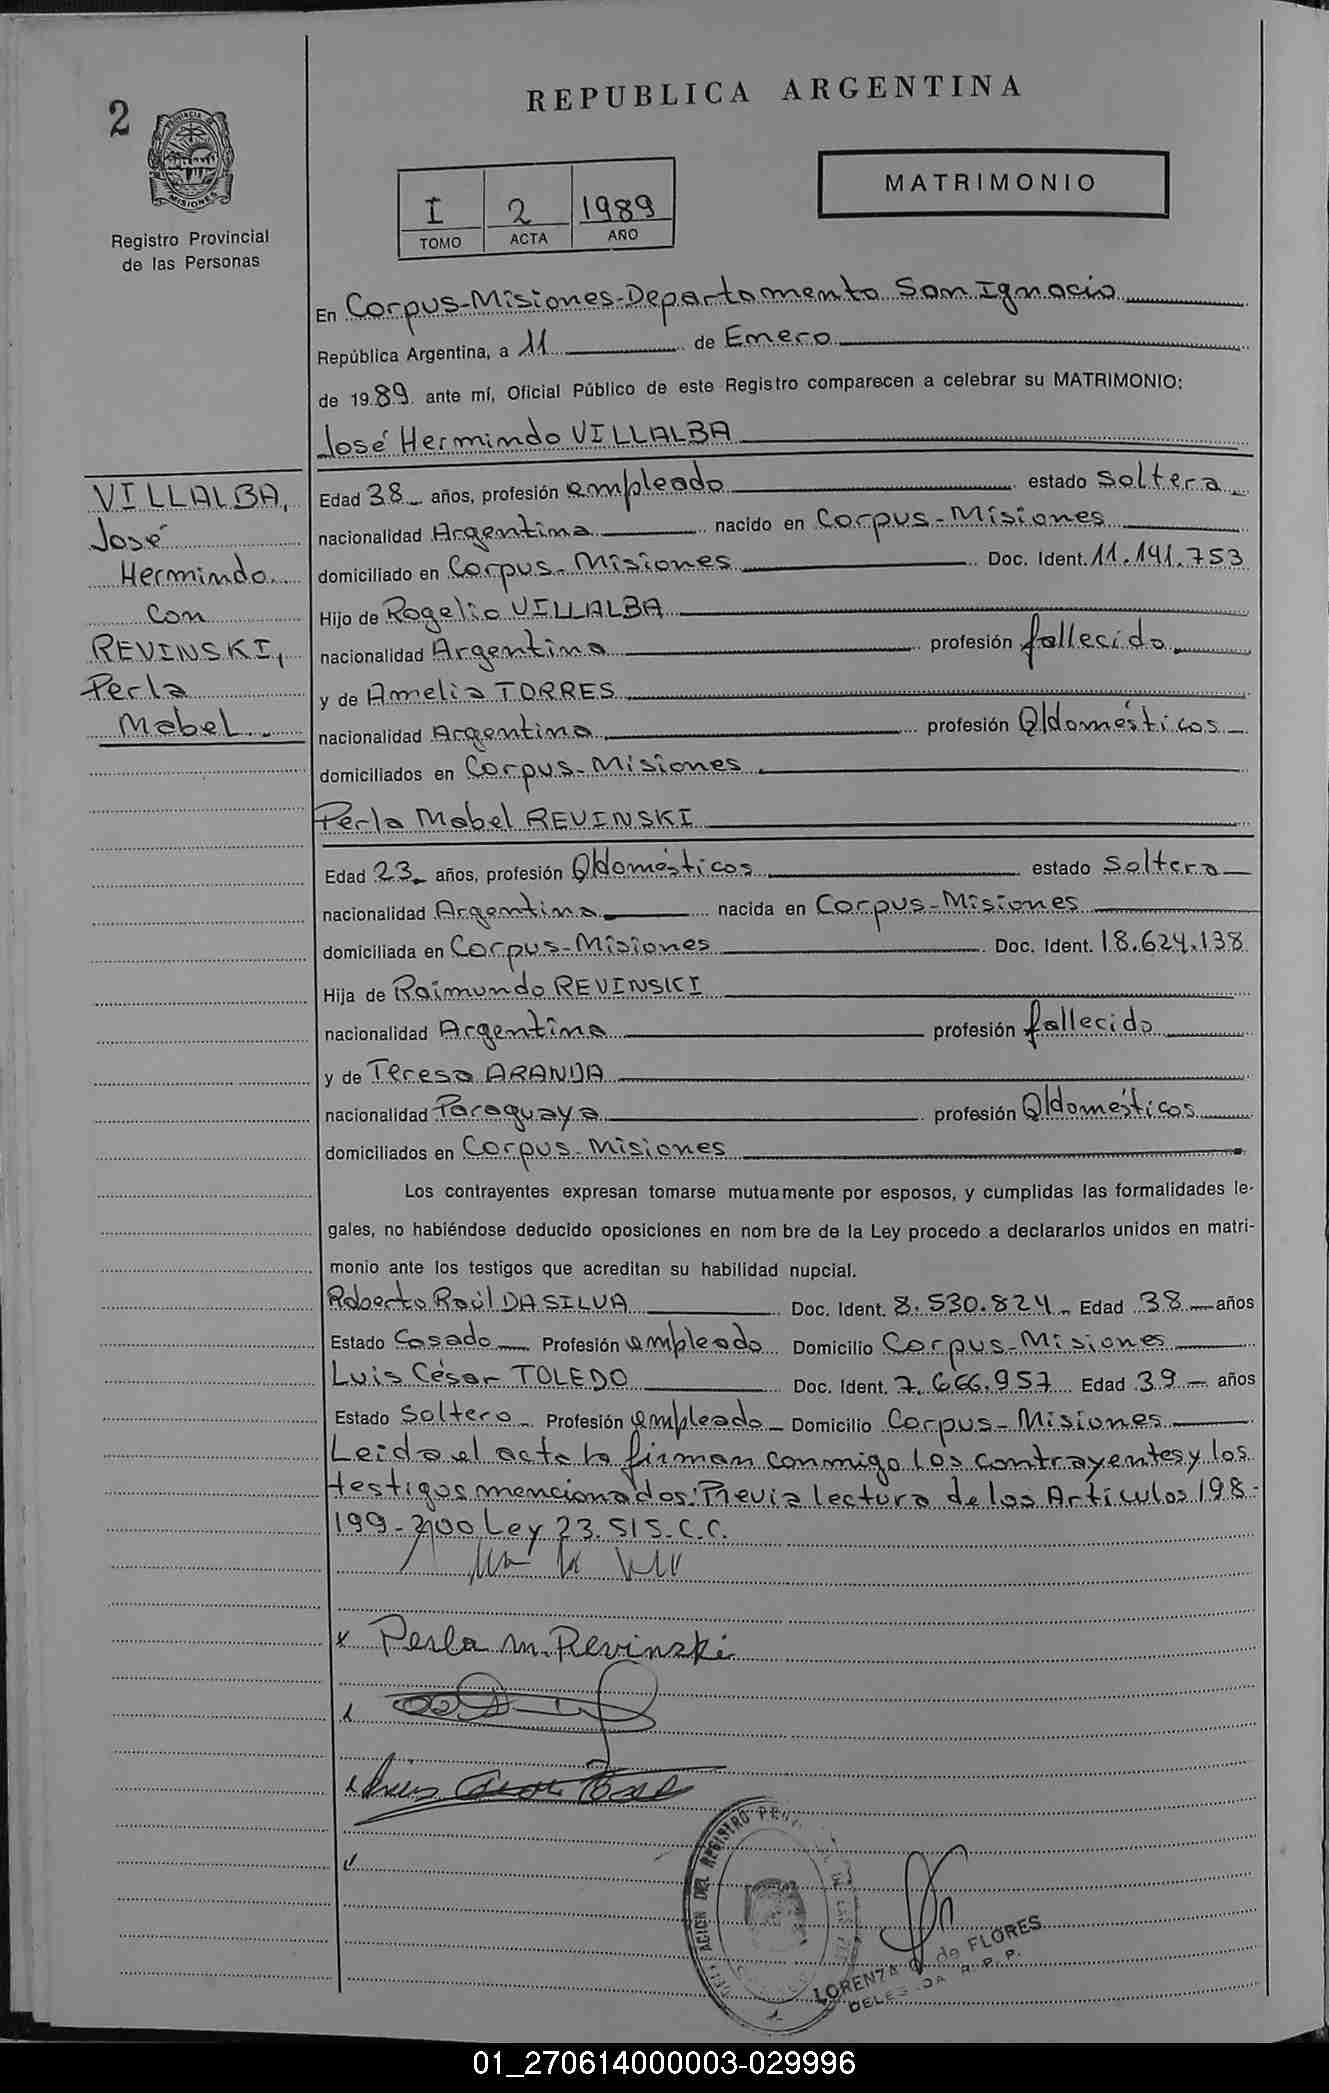 REPUBLICA ARGENTINA
2
PROVINCIA DE
MISIONES
Registro Provincial
de las Personas
I 2 1989
TOMO ACTA AÑO
MATRIMONIO
En Corpus-Misiones-Departamento San Ignacio
República Argentina, a 11 de Enero
de 19 89 ante mí, Oficial Público de este Registro comparecen a celebrar su MATRIMONIO:
José Hermindo VILLALBA
VILLALBA,
José
Hermindo
con
REVINSKI,
Perla
Mabel
Edad 38 años, profesión empleado estado Soltera
nacionalidad Argentina nacido en Corpus-Misiones
domiciliado en Corpus-Misiones Doc. Ident. 11.141.753
Hijo de Rogelio VILLALBA
nacionalidad Argentina profesión fallecido
y de Amelia TORRES
nacionalidad Argentina profesión Q/domésticos
domiciliados en Corpus-Misiones
Perla Mabel REVINSKI
Edad 23 años, profesión Q/domésticos estado Soltera
nacionalidad Argentina nacida en Corpus-Misiones
domiciliada en Corpus-Misiones Doc. Ident. 18.624.138
Hija de Raimundo REVINSKI
nacionalidad Argentina profesión fallecido
y de Teresa ARANDA
nacionalidad Paraguaya profesión Q/domésticos
domiciliados en Corpus-Misiones
Los contrayentes expresan tomarse mutuamente por esposos, y cumplidas las formalidades le-
gales, no habiéndose deducido oposiciones en nom bre de la Ley procedo a declararlos unidos en matri-
monio ante los testigos que acreditan su habilidad nupcial.
Roberto Raúl DA SILVA Doc. Ident. 8.530.824 Edad 38 años
Estado Casado Profesión empleado Domicilio Corpus-Misiones
Luis César TOLEDO Doc. Ident. 7.666.957 Edad 39 años
Estado Soltero Profesión empleado Domicilio Corpus-Misiones
Leida el acta la firman conmigo los contrayentes y los
testigos mencionados: Previa lectura de los Artículos 198-
199-200 Ley 23.515.C.C.
x Perla M. Revinski
DEL REGISTRO
DE LAS
LORENZA de FLORES
R. P. P.
01_270614000003-029996